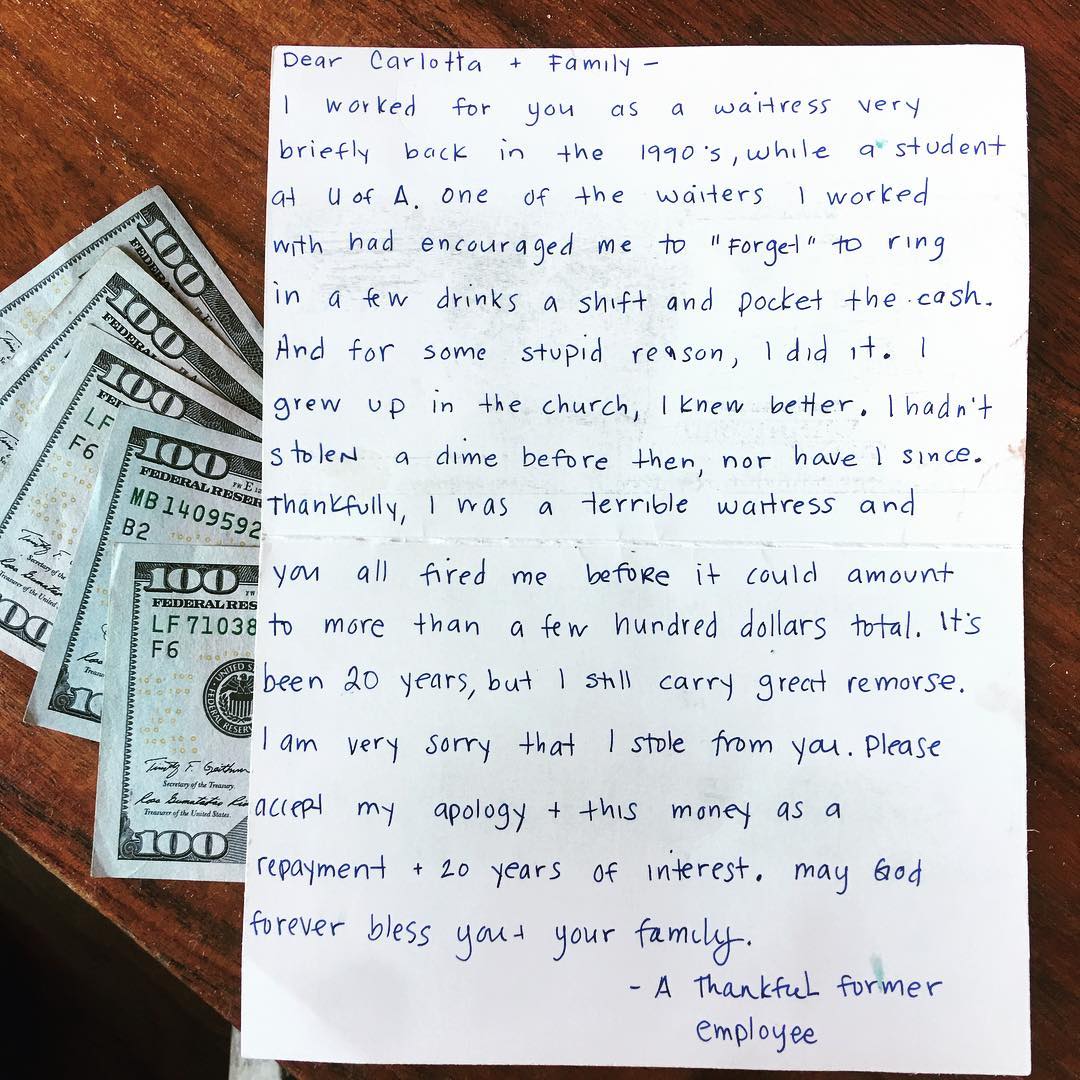 Dear Carlotta + Family -
I worked for you as a waitress very
briefly back in the 1990's, while a student
at U of A. One of the waiters I worked
with had encouraged me to "Forget" to ring
in a few drinks a shift and pocket the cash.
And for some stupid reason, I did it. I
grew up in the church, I knew better. I hadn't
stolen a dime before then, nor have I since.
Thankfully, I was a terrible waitress and
you all fired me before it could amount
to more than a few hundred dollars total. It's
been 20 years, but I still carry great remorse.
I am very sorry that I stole from you. Please
accept my apology + this money as a
repayment + 20 years of interest. may God
forever bless you + your family.
- A Thankful former
employee
100
100
100
LF
F6
100
FEDERAL RESER
MB 1409592
B2
100
FEDERAL RES
LF 71038
F6
Secretary of the Treasury.
Treasurer of the United States.
100